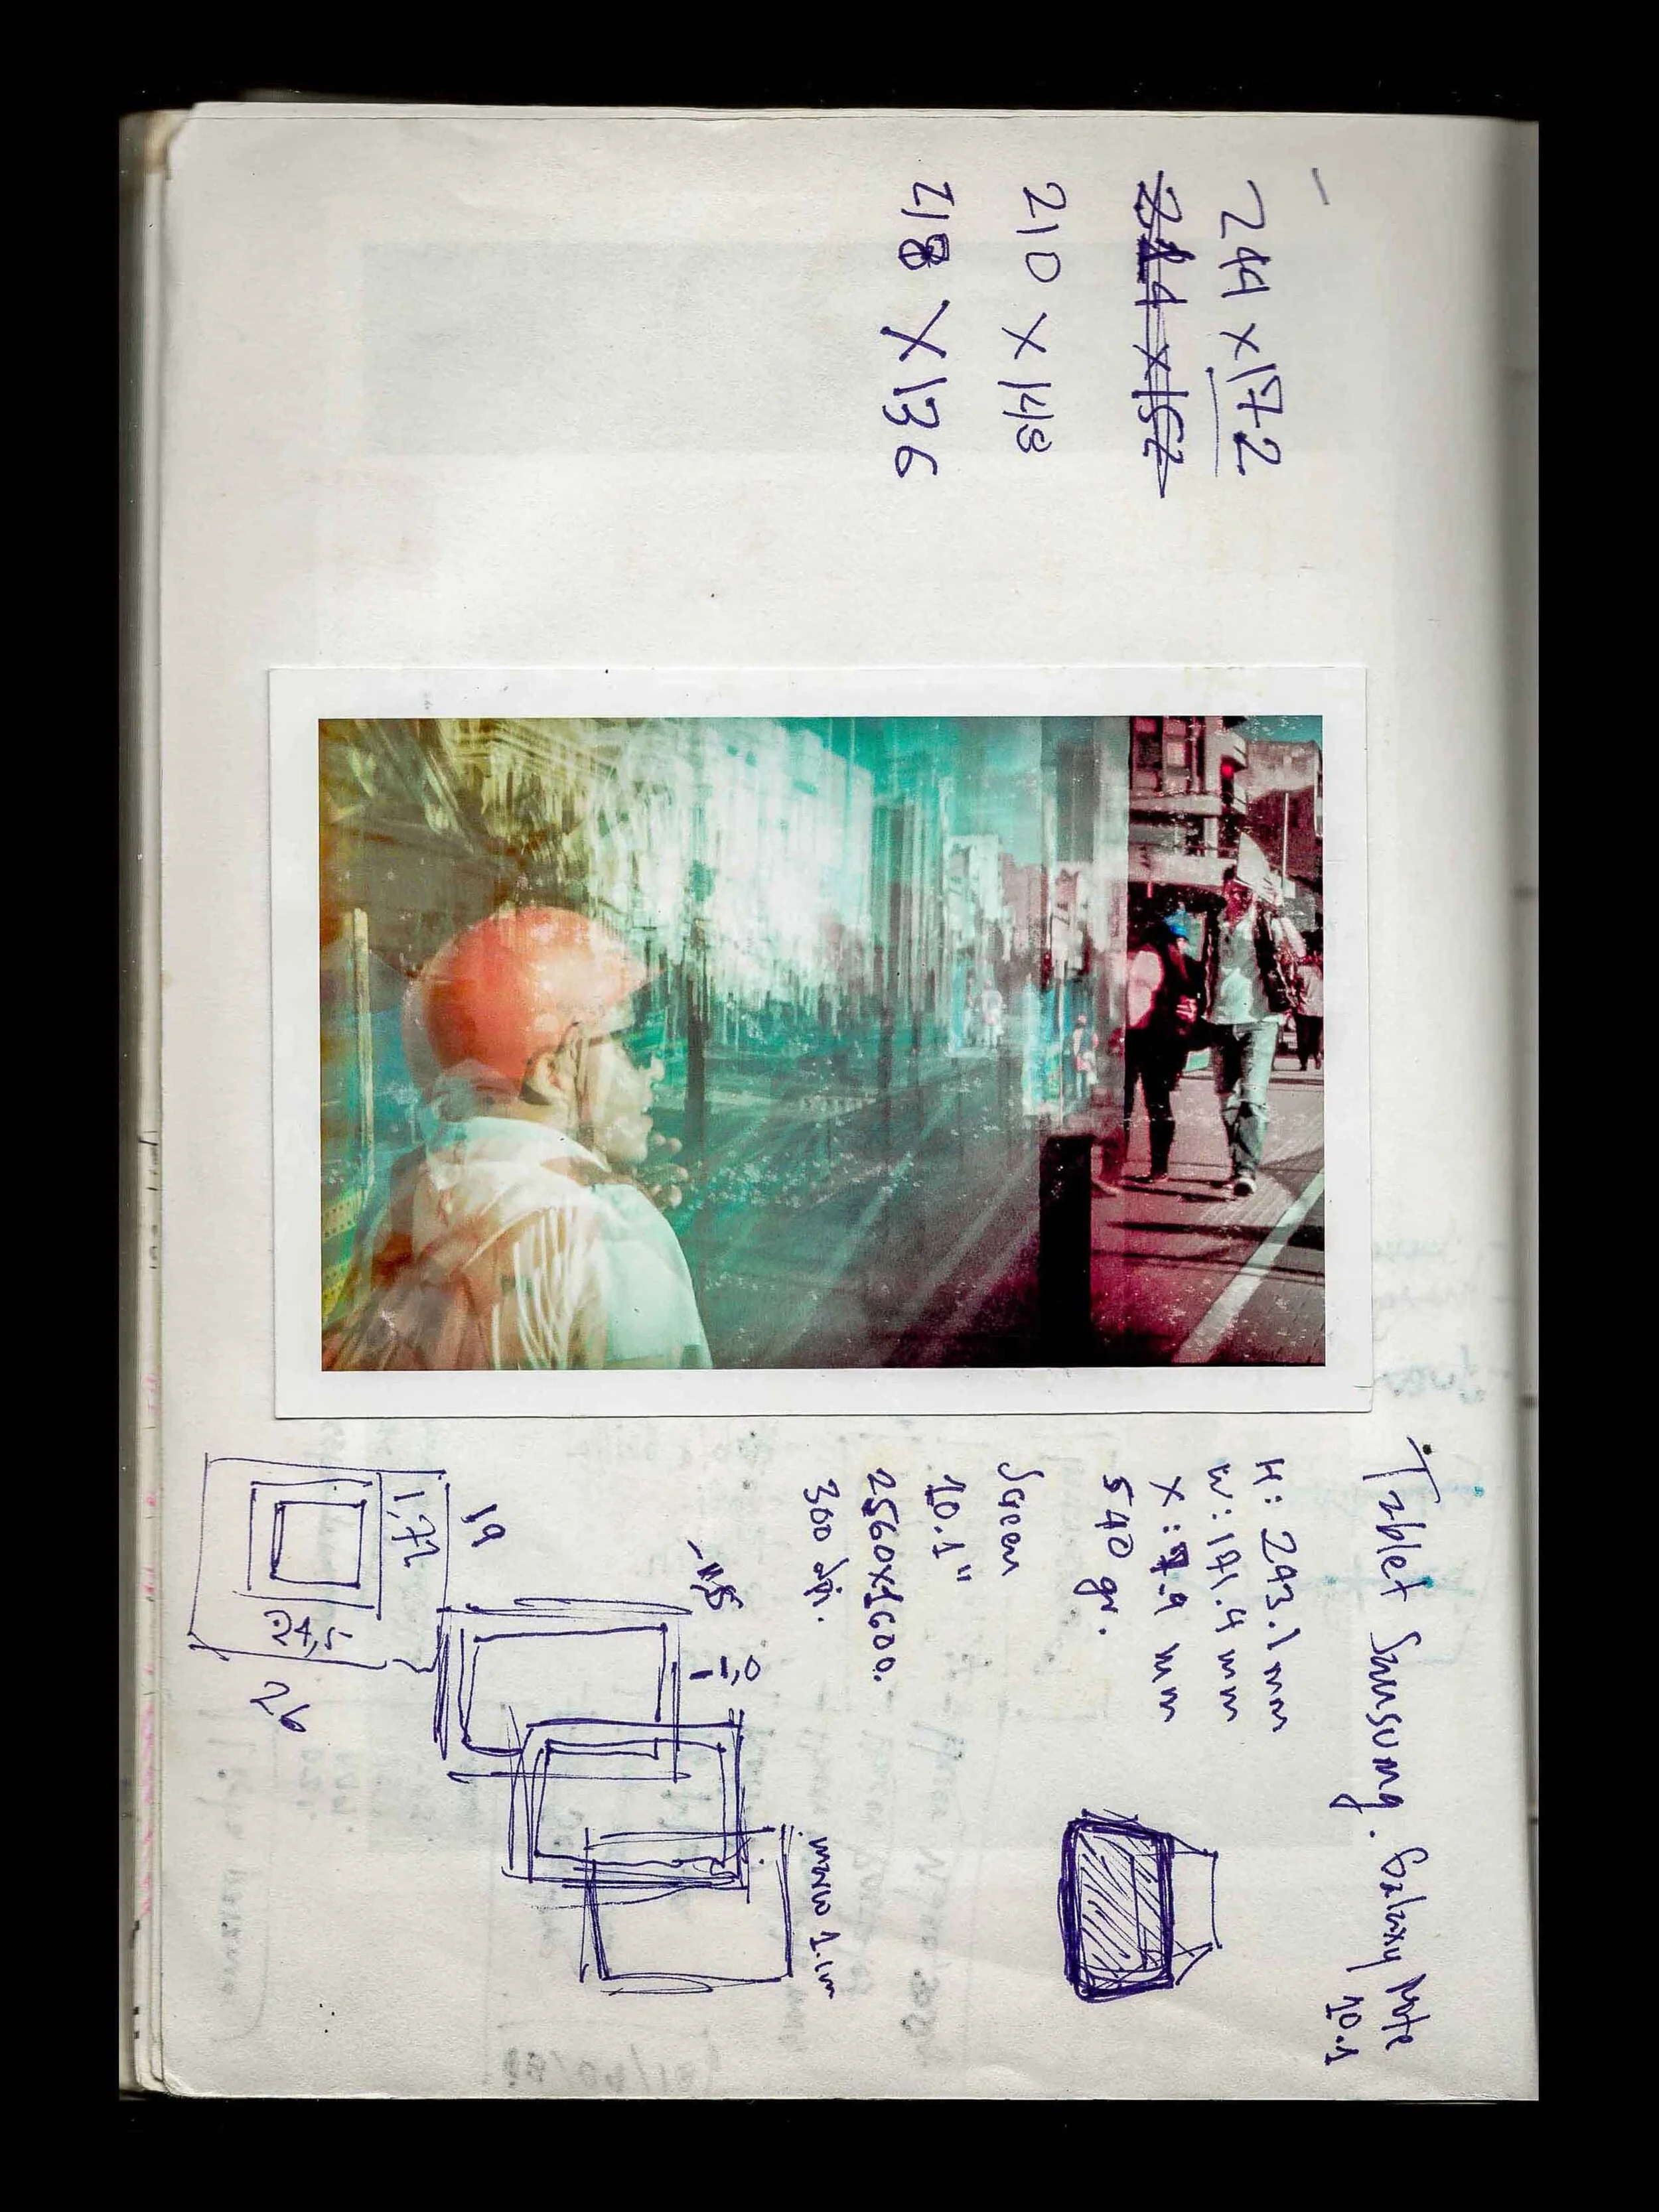 244 x 172
244 x 152
210 x 148
218 x 136
Tablet Samsung. Galaxy Note
10.1
H: 243.1 mm
W: 171.4 mm
X: 7.9 mm
540 gr.
Screen
10.1"
2560x1600.
300 dpi.
marco 1.1m
1,72
24,5
19